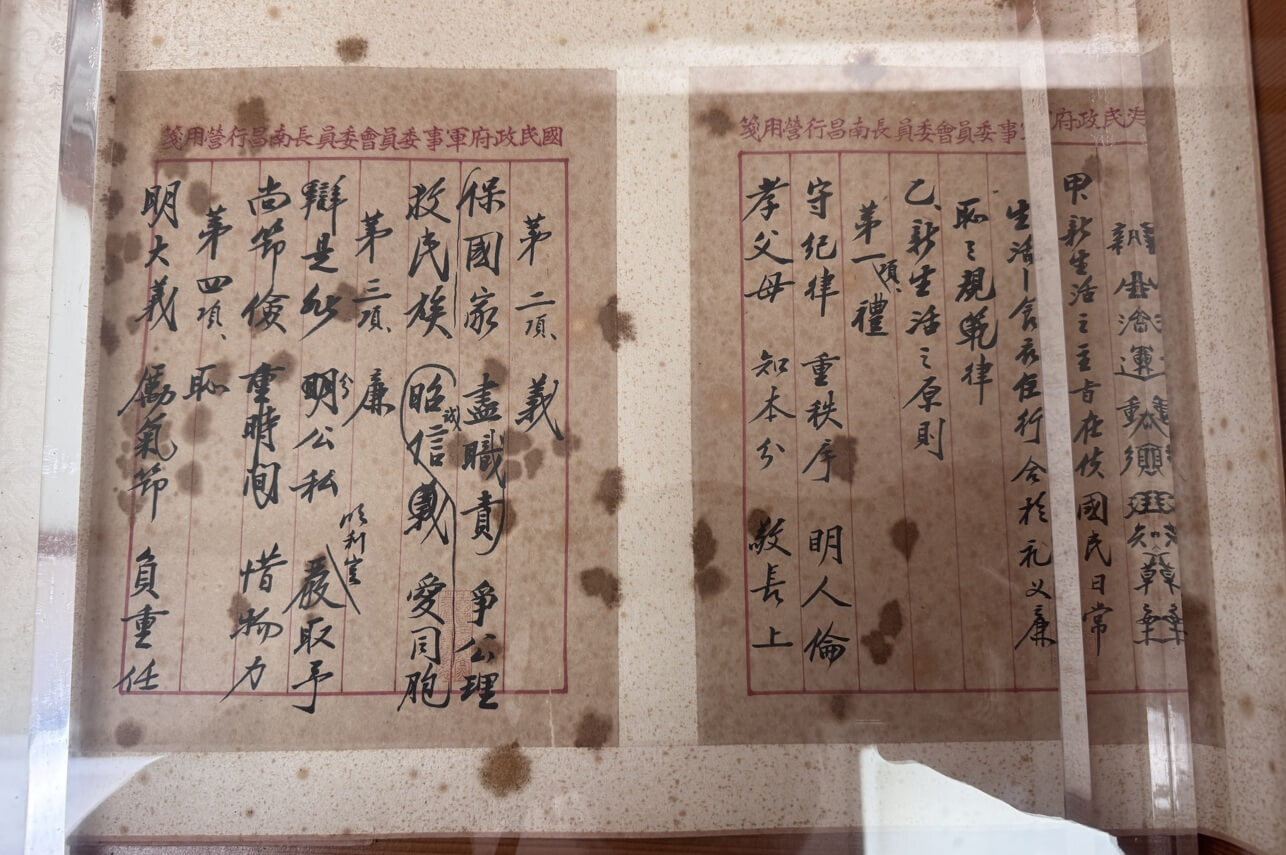 民政府事委員會委員長南昌行營用箋
新生活運動
甲、新生活之主旨在使國民日常
生活—食衣住行合於礼义廉
恥之規範律
乙、新生活之原則
第一項、禮
守紀律 重秩序 明人倫
孝父母 知本分 敬長上
國民政府軍事委員會委員長南昌行營用箋
第二項、義
保國家 盡職責 爭公理
救民族 昭誠信義 愛同胞
第三項、廉
利害
辯是非 分明公私 嚴取予
尚節儉 重時間 惜物力
第四項、恥
明大義 勵氣節 負重任